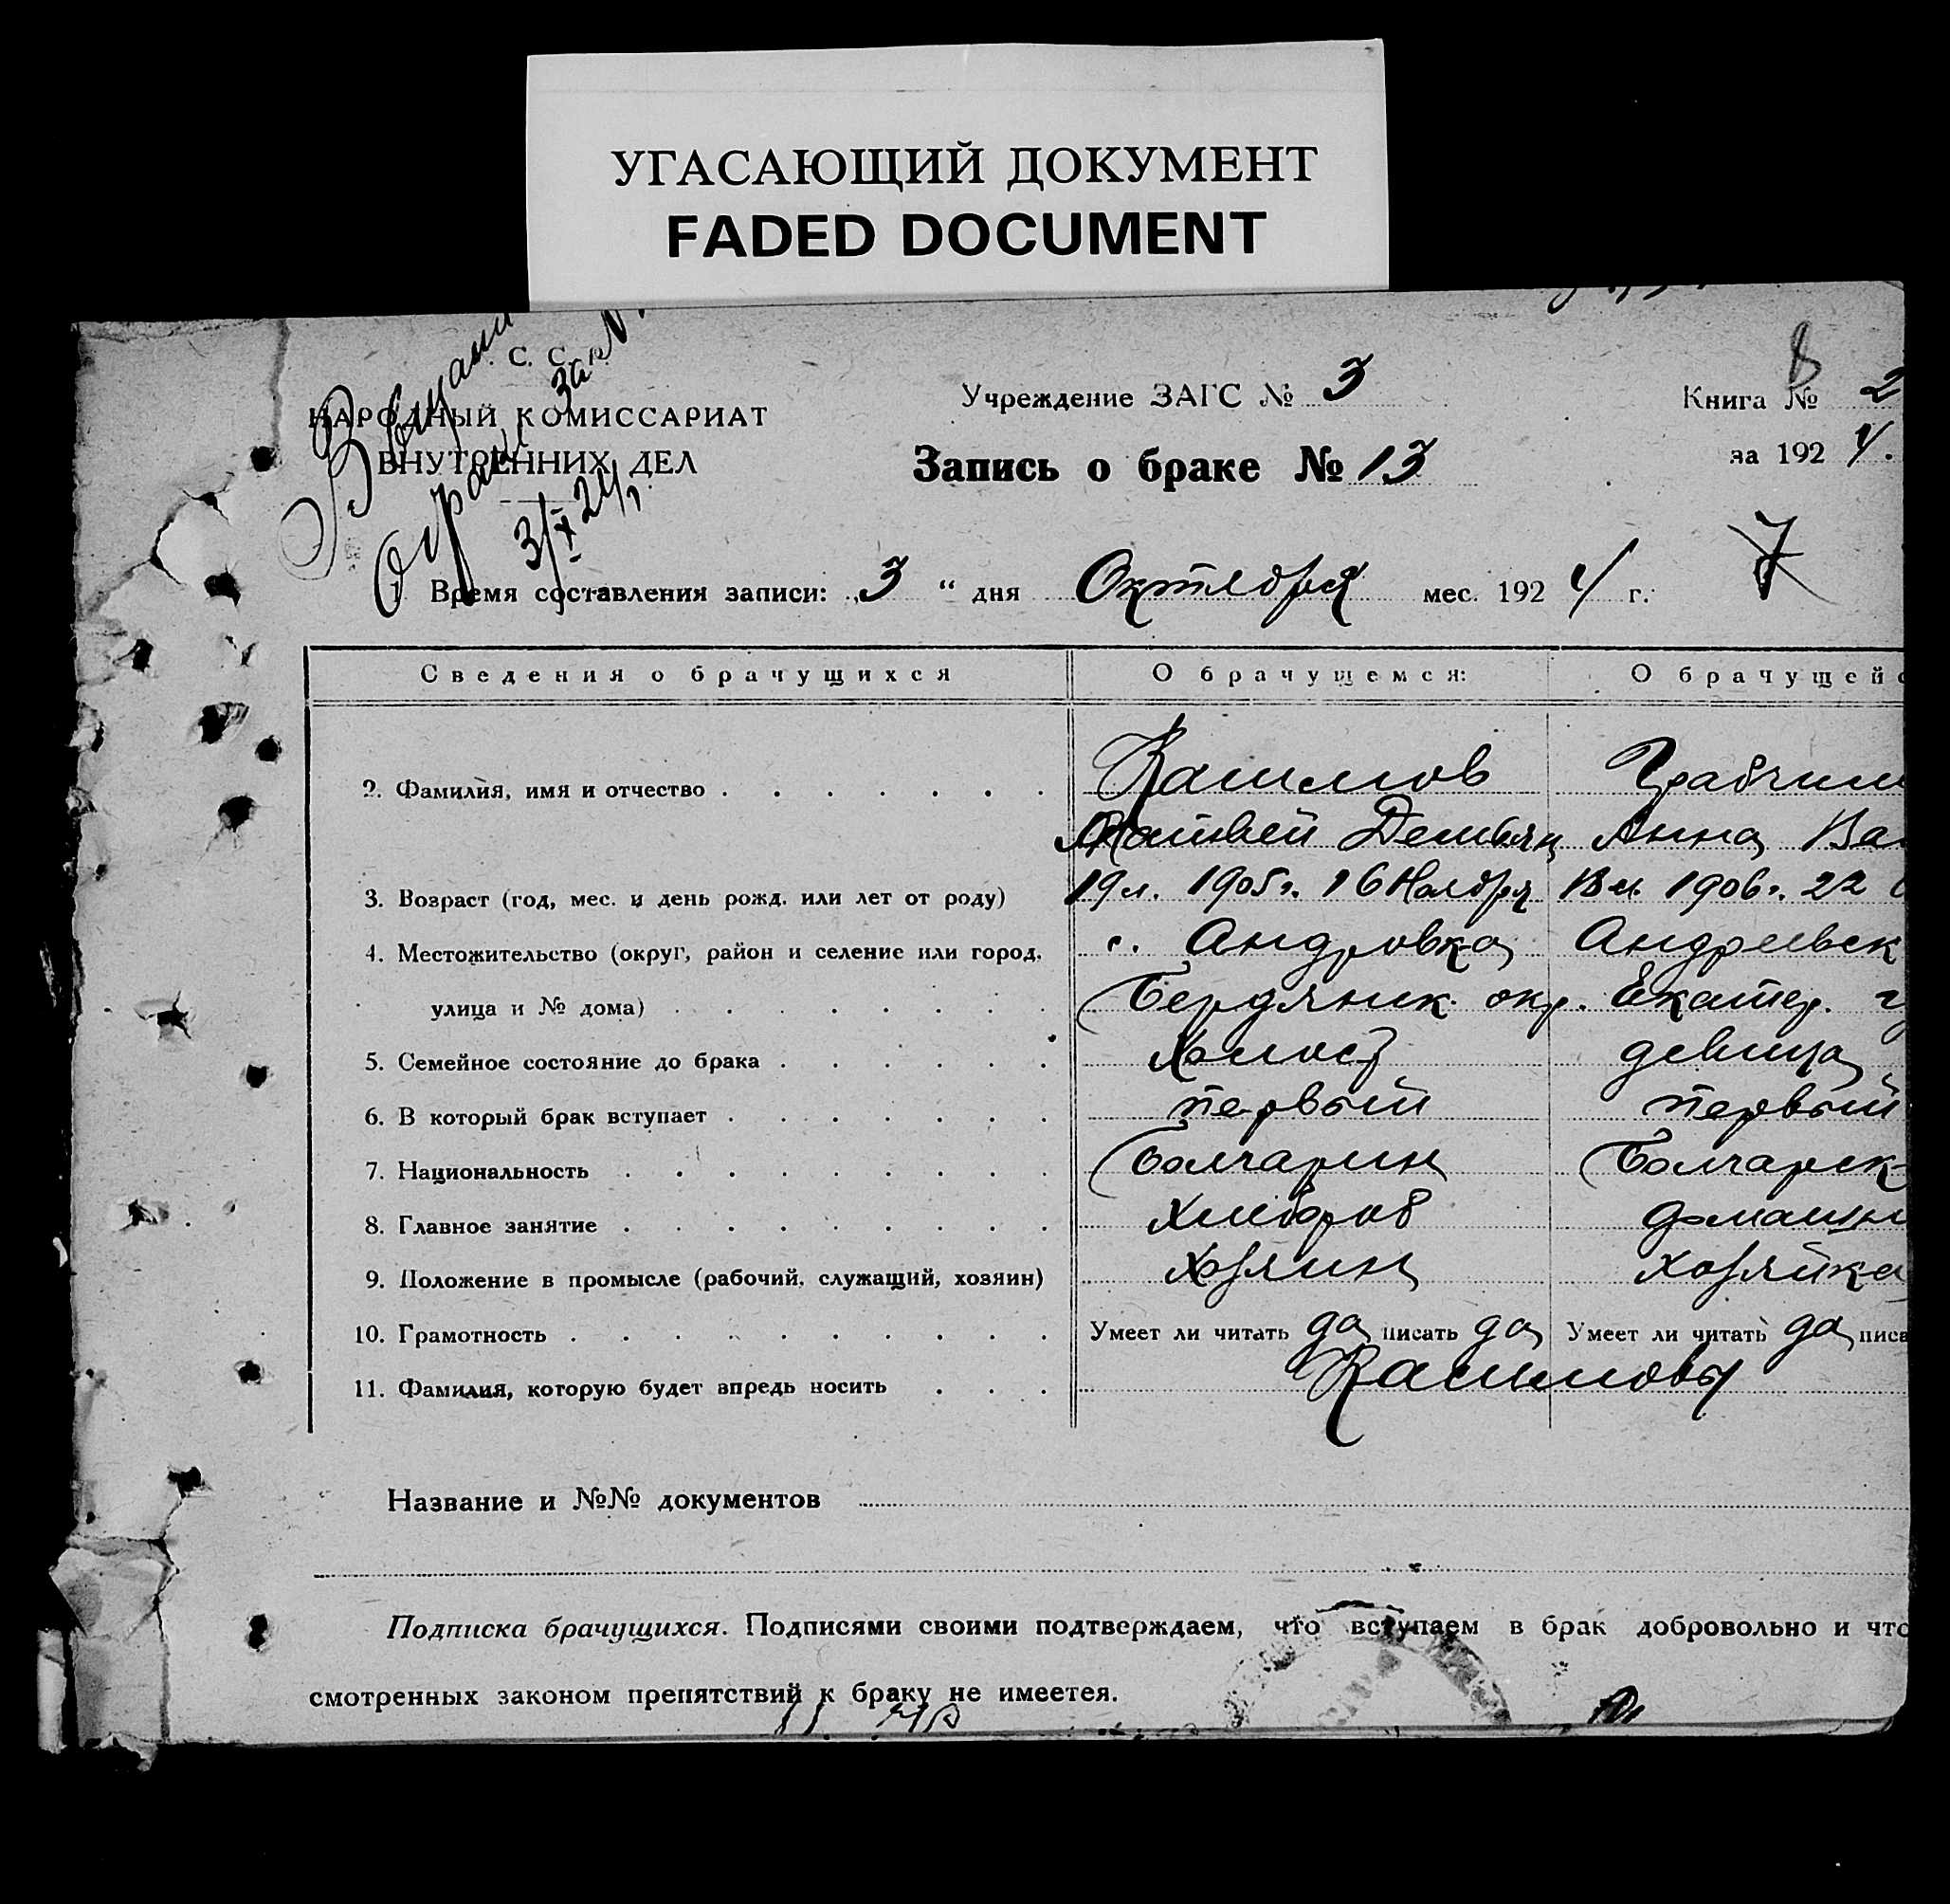 УГАСАЮЩИЙ ДОКУМЕНТ
FADED DOCUMENT
С. С.
НАРОДНЫЙ КОМИССАРИАТ
ВНУТРЕННИХ ДЕЛ
Учреждение ЗАГС № 3
Книга № 2
8
за 1924.
Запись о браке № 13
7
3/X 24 г.
1. Время составления записи: „3 “ дня Октября мес. 1924 г.
Сведения о брачущихся О брачущемся: О брачущейс
2. Фамилия, имя и отчество
Матвей Демьян Анна Ва
3. Возраст (год, мес. и день рожд. или лет от роду) 19 л. 1905 г. 16 Ноября 18 л. 1906 г. 22
4. Местожительство (округ, район и селение или город, с. Андровка Андреевск
улица и № дома) Бердянск. окр. Екатер. г
5. Семейное состояние до брака холост девица
6. В который брак вступает первый первый
7. Национальность Болгарин Болгарск
8. Главное занятие Хлебороб домашн
9. Положение в промысле (рабочий, служащий, хозяин) хозяин хозяйка
10. Грамотность Умеет ли читать да писать да Умеет ли читать да писа
11. Фамилия, которую будет впредь носить
Название и №№ документов
Подписка брачущихся. Подписями своими подтверждаем, что вступаем в брак добровольно и что
смотренных законом препятствий к браку не имеетея.